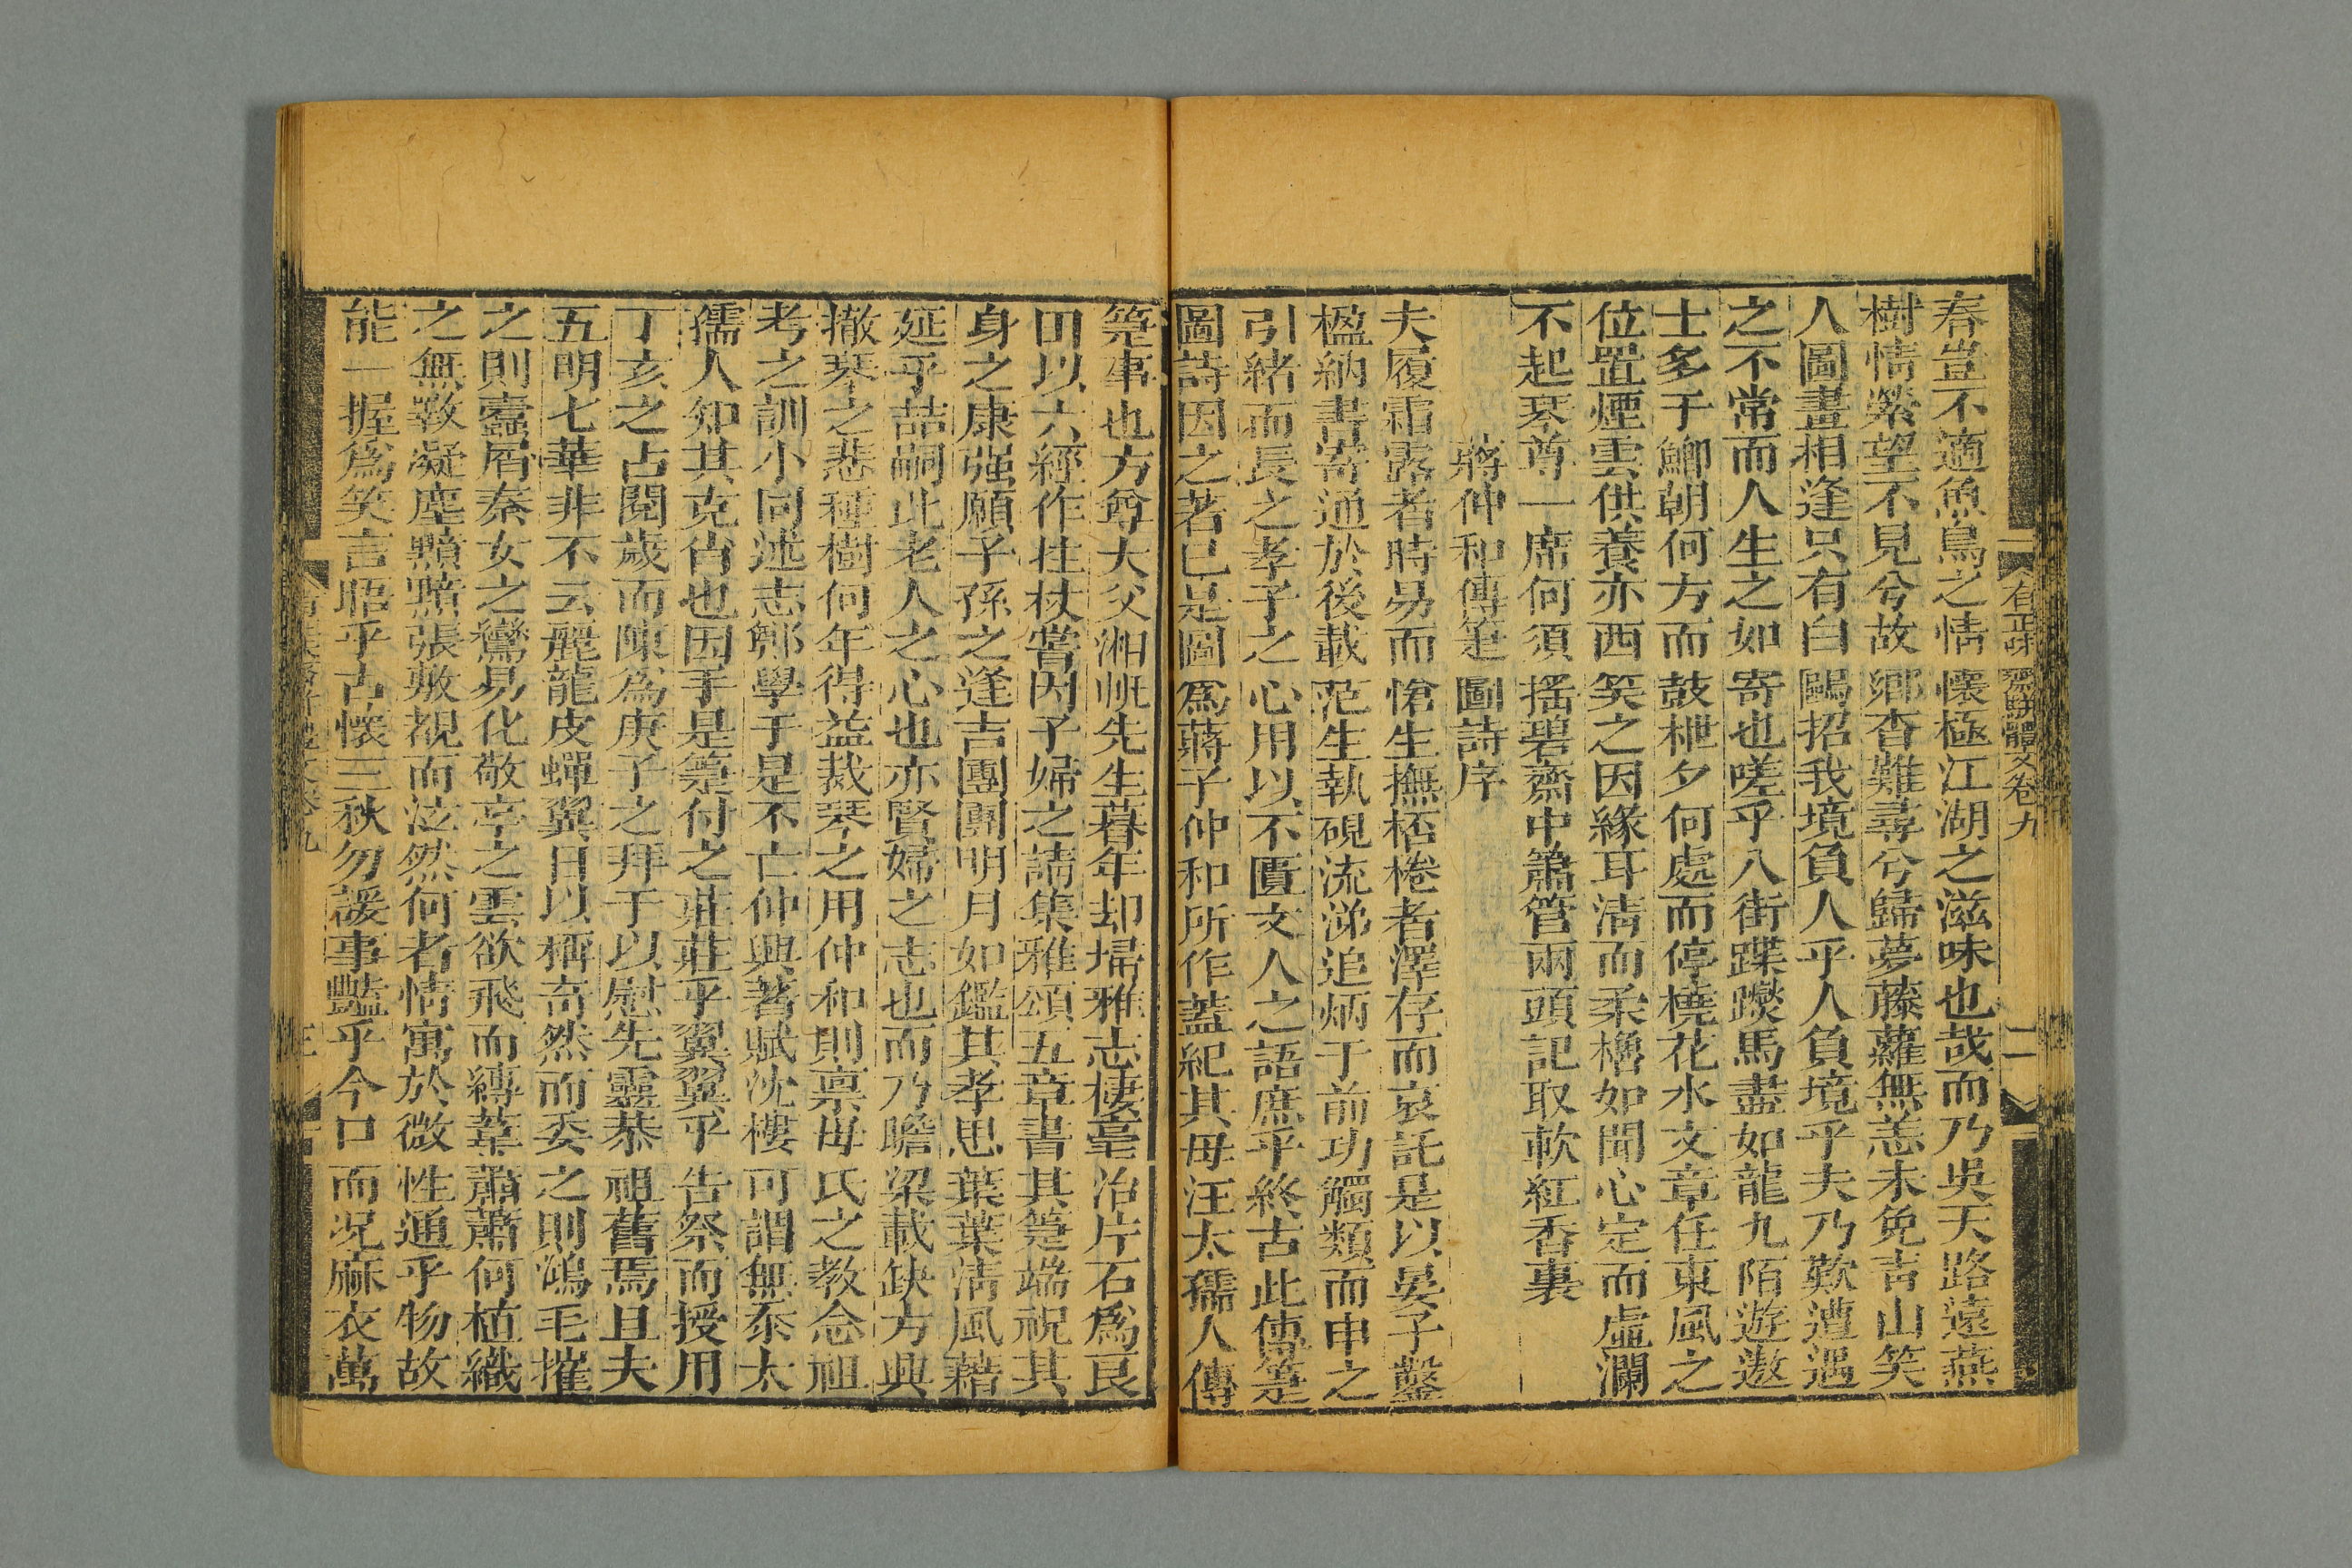 有正味齋駢體文卷九
二
春豈不適魚鳥之情懷極江湖之滋味也哉而乃吳天路遠燕
樹情縈望不見兮故鄉杳難尋兮歸夢藤蘿無恙未免青山笑
人圖畫相逢只有白鷗招我境負人乎人負境乎夫乃歎遭遇
之不常而人生之如寄也嗟乎八街蹀躞馬盡如龍九陌遊遨
士多于鯽朝何方而鼓枻夕何處而停橈花水文章任東風之
位置煙雲供養亦西笑之因緣耳淸而柔櫓如聞心定而虛瀾
不起琴尊一席何須搖碧齋中簫管兩頭記取軟紅香裏
蔣仲和傳箑圖詩序
夫履霜露者時易而愴生撫桮棬者澤存而哀託是以晏子鑿
楹納書寄通於後載范生執硯流涕追炳于前功觸類而申之
引緒而長之孝子之心用以不匱文人之語庶乎終古此傳箑
圖詩因之著已是圖爲蔣子仲和所作蓋紀其母汪太孺人傳
箑事也方尊大父湘帆先生暮年却埽雅志棲毫冶片石爲良
田以六經作拄杖嘗因子婦之請集雅頌五章書其箑端祝其
身之康强願子孫之逢吉團團明月如鑑其孝思葉葉淸風藉
延乎喆嗣此老人之心也亦賢婦之志也而乃瞻梁載缺方興
撤琴之悲種樹何年得益裁琴之用仲和則禀母氏之教念祖
考之訓小同述志鄭學于是不亡仲興著賦沈樓可謂無忝太
孺人知其克肖也因手是箑付之莊莊乎翼翼乎告祭而授用
丁亥之占閱歲而陳爲庚子之拜于以慰先靈恭祖舊焉且夫
五明七華非不云麗龍皮蟬翼日以稱奇然而委之則鴻毛摧
之則蠹屑秦女之鸞易化敬亭之雲欲飛而縳葦蕭蕭何植織
之無斁凝塵黯黯張敷覩而泫然何者情寓於微性通乎物故
能一握爲笑言晤乎古懷三秋勿諼事豔乎今口而況麻衣萬